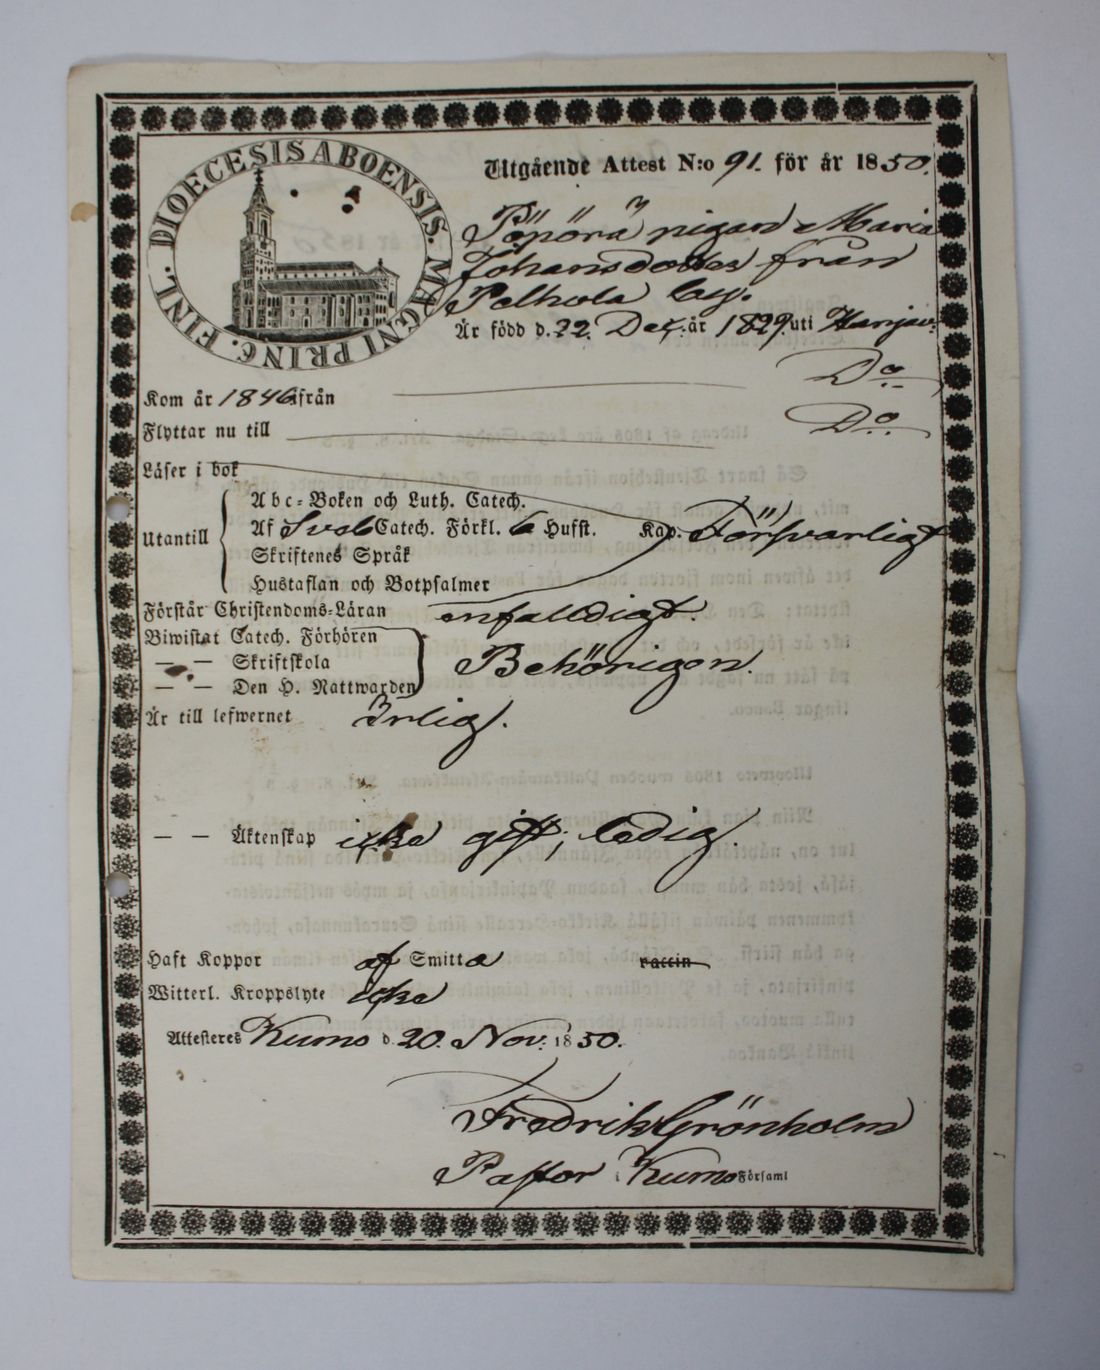 DIOECESIS ABOENSIS. MAGNI PRINC. FINL.
Utgående Attest N:o 91. för år 1850.
pigan Maria
Johansdotter från
by.
Är född d. 22 Dec. år 1829. uti Harjav:
Kom år 1846 ifrån Do
Flyttar nu till Do
Läser i bok
Abc-Boken och Luth. Catech.
Utantill Af Sveb Catech. Förkl. 6 Hufst. Kap. Försvarligt
Skriftenes Språk
Hustaflan och Botpsalmer
Förstår Christendoms-Läran enfalldigt.
Biwistat Catech. Förhören
— — Skriftskola Behörigen.
— — Den H. Nattwarden
Är till lefwernet Ärlig.
— — Äktenskap icke gift, ledig.
Haft Koppor af Smitta vaccin
Witterl. Kroppslyte icke
Attesteres Kumo d. 20. Nov: 1850.
Fredrik Grönholm
Pastor i Kumo Församl